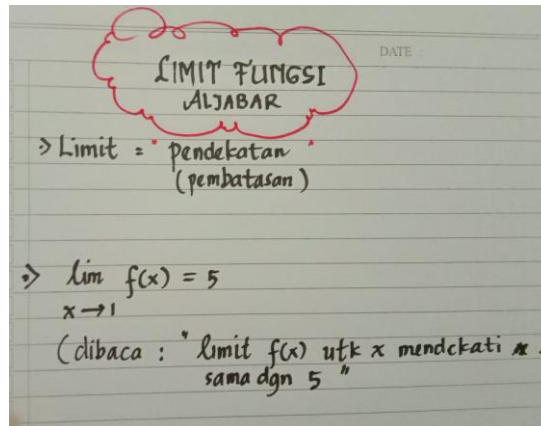 DATE :
LIMIT FUNGSI
ALJABAR
⇒ Limit = " pendekatan "
(pembatasan)
⇒ lim f(x) = 5
x → 1
(dibaca : " limit f(x) utk x mendekati
sama dgn 5 "